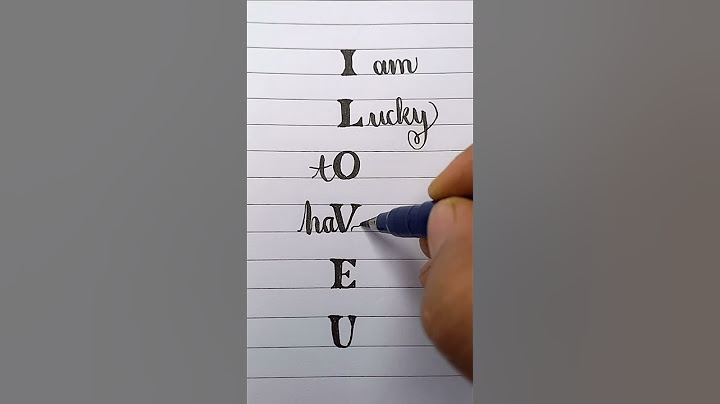 I am
Lucky
tO
haV
E
U